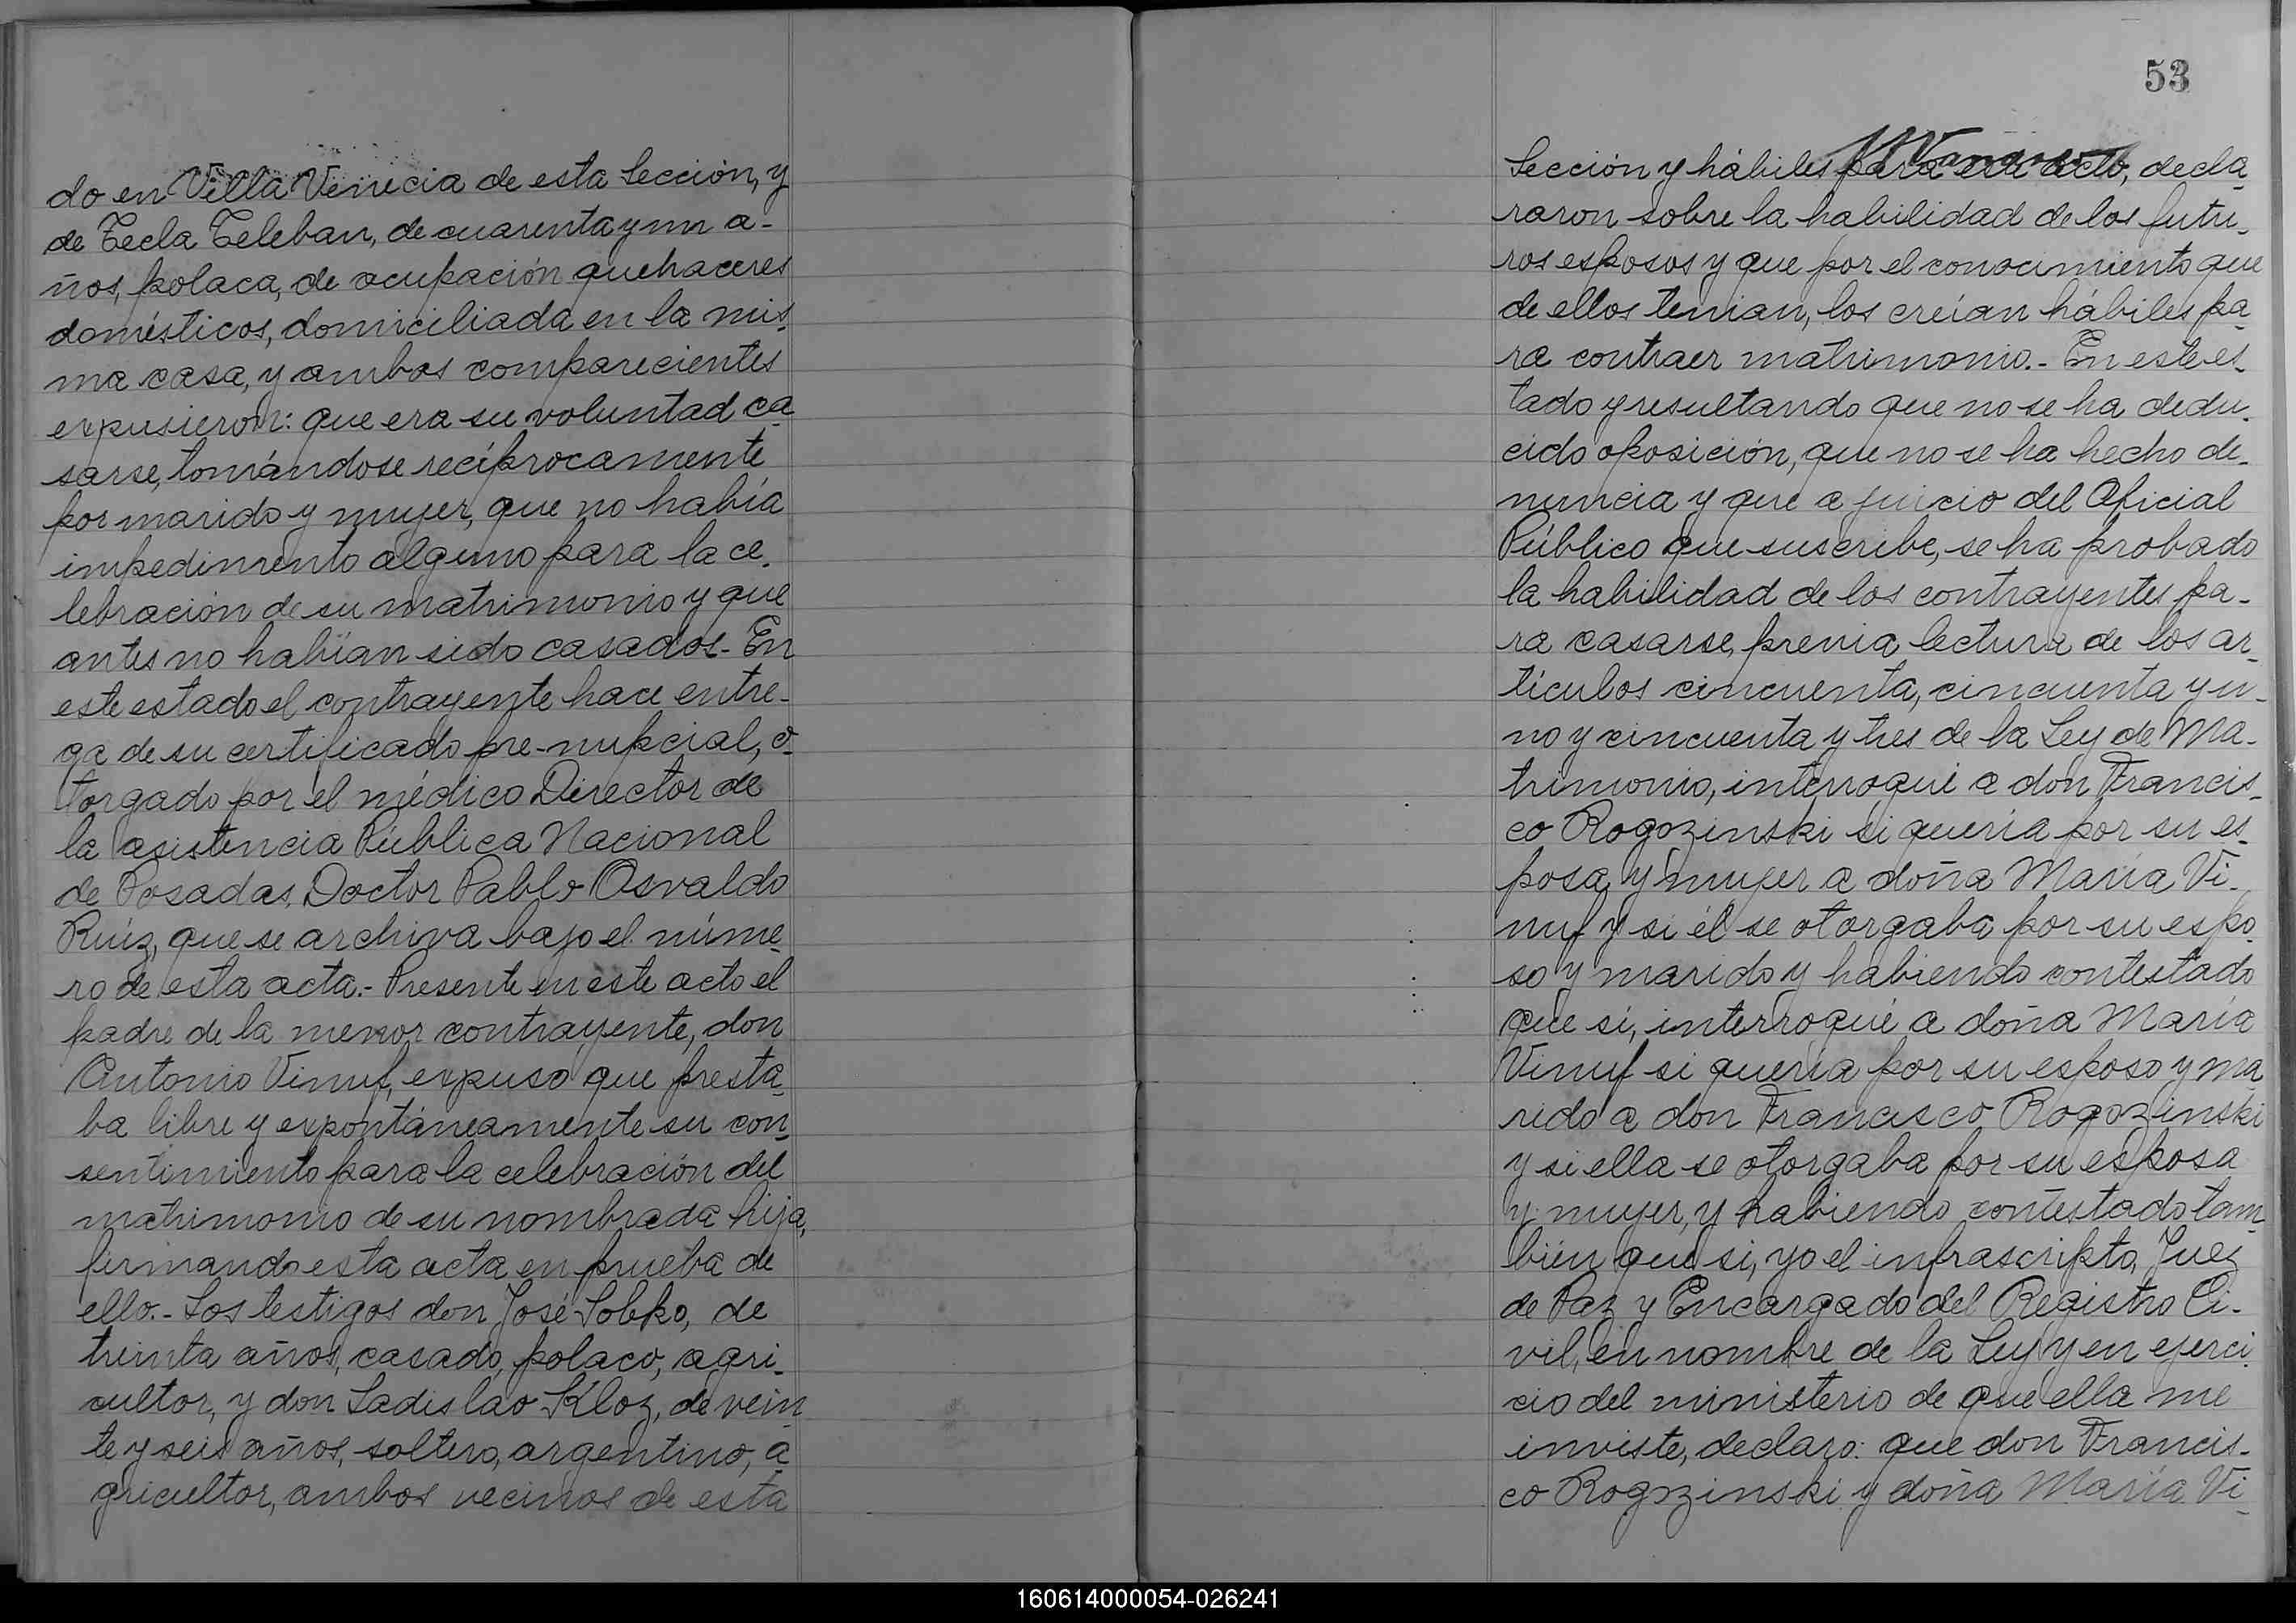 do en Villa Venecia de esta Sección, y
de Tecla Teleban, de cuarenta y un a-
ños, polaca, de ocupación quehaceres
domésticos, domiciliada en la mis-
ma casa, y ambos comparecientes
expusieron: que era su voluntad ca-
sarse, tomándose recíprocamente
por marido y mujer, que no había
impedimento alguno para la ce-
lebración de su matrimonio y que
antes no habían sido casados.- En
este estado el contrayente hace entre-
ga de su certificado pre-nupcial, o-
torgado por el médico Director de
la asistencia Pública Nacional
de Posadas, Doctor Pablo Osvaldo
Ruíz, que se archiva bajo el núme-
ro de esta acta.- Presente en este acto el
padre de la menor contrayente, don
Antonio Vinuf, expuso que presta-
ba libre y expontáneamente su con-
sentimiento para la celebración del
matrimonio de su nombrada hija,
firmando esta acta en prueba de
ello.- Los testigos don José Sobko, de
treinta años, casado, polaco, agri-
cultor, y don Ladislao Kloz, de vein-
te y seis años, soltero, argentino, a-
gricultor, ambos vecinos de esta
53
Sección y hábiles para este acto, decla-
raron sobre la habilidad de los futu-
ros esposos y que por el conocimiento que
de ellos tenían, los creían hábiles pa-
ra contraer matrimonio.- En este es-
tado y resultando que no se ha dedu-
cido oposición, que no se ha hecho de-
nuncia y que a juicio del Oficial
Público que suscribe, se ha probado
la habilidad de los contrayentes pa-
ra casarse, previa lectura de los ar-
tículos cincuenta, cincuenta y u-
no y cincuenta y tres de la Ley de Ma-
trimonio, interrogué a don Francis-
co Rogozinski si quería por su es-
posa y mujer a doña María Vi-
nuf y si él se otorgaba por su espo-
so y marido y habiendo contestado
que si, interrogué a doña María
Vinuf si quería por su esposo y ma-
rido a don Francisco Rogozinski
y si ella se otorgaba por su esposa
y mujer, y habiendo contestado tam-
bién que si, yo el infrascripto, Juez
de Paz y Encargado del Registro Ci-
vil, en nombre de la Ley y en ejerci-
cio del ministerio de que ella me
inviste, declaro: que don Francis-
co Rogozinski y doña María Vi-
160614000054-026241